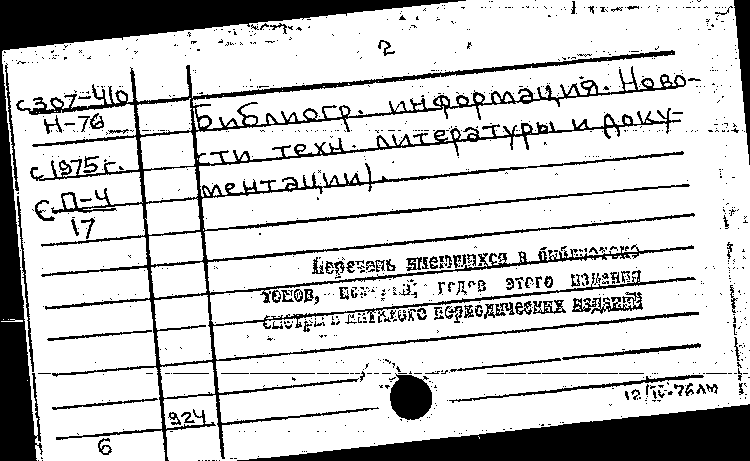 2
с 307-410
Н-76
с 1975 г.
С. П-4
17
Библиогр. информация. Ново-
сти техн. литературы и доку-
ментации).
Перечень имеющихся в библиотеке
томов, годов этого издания
смотри в каталоге периодических изданий
924
6
12/IV-76